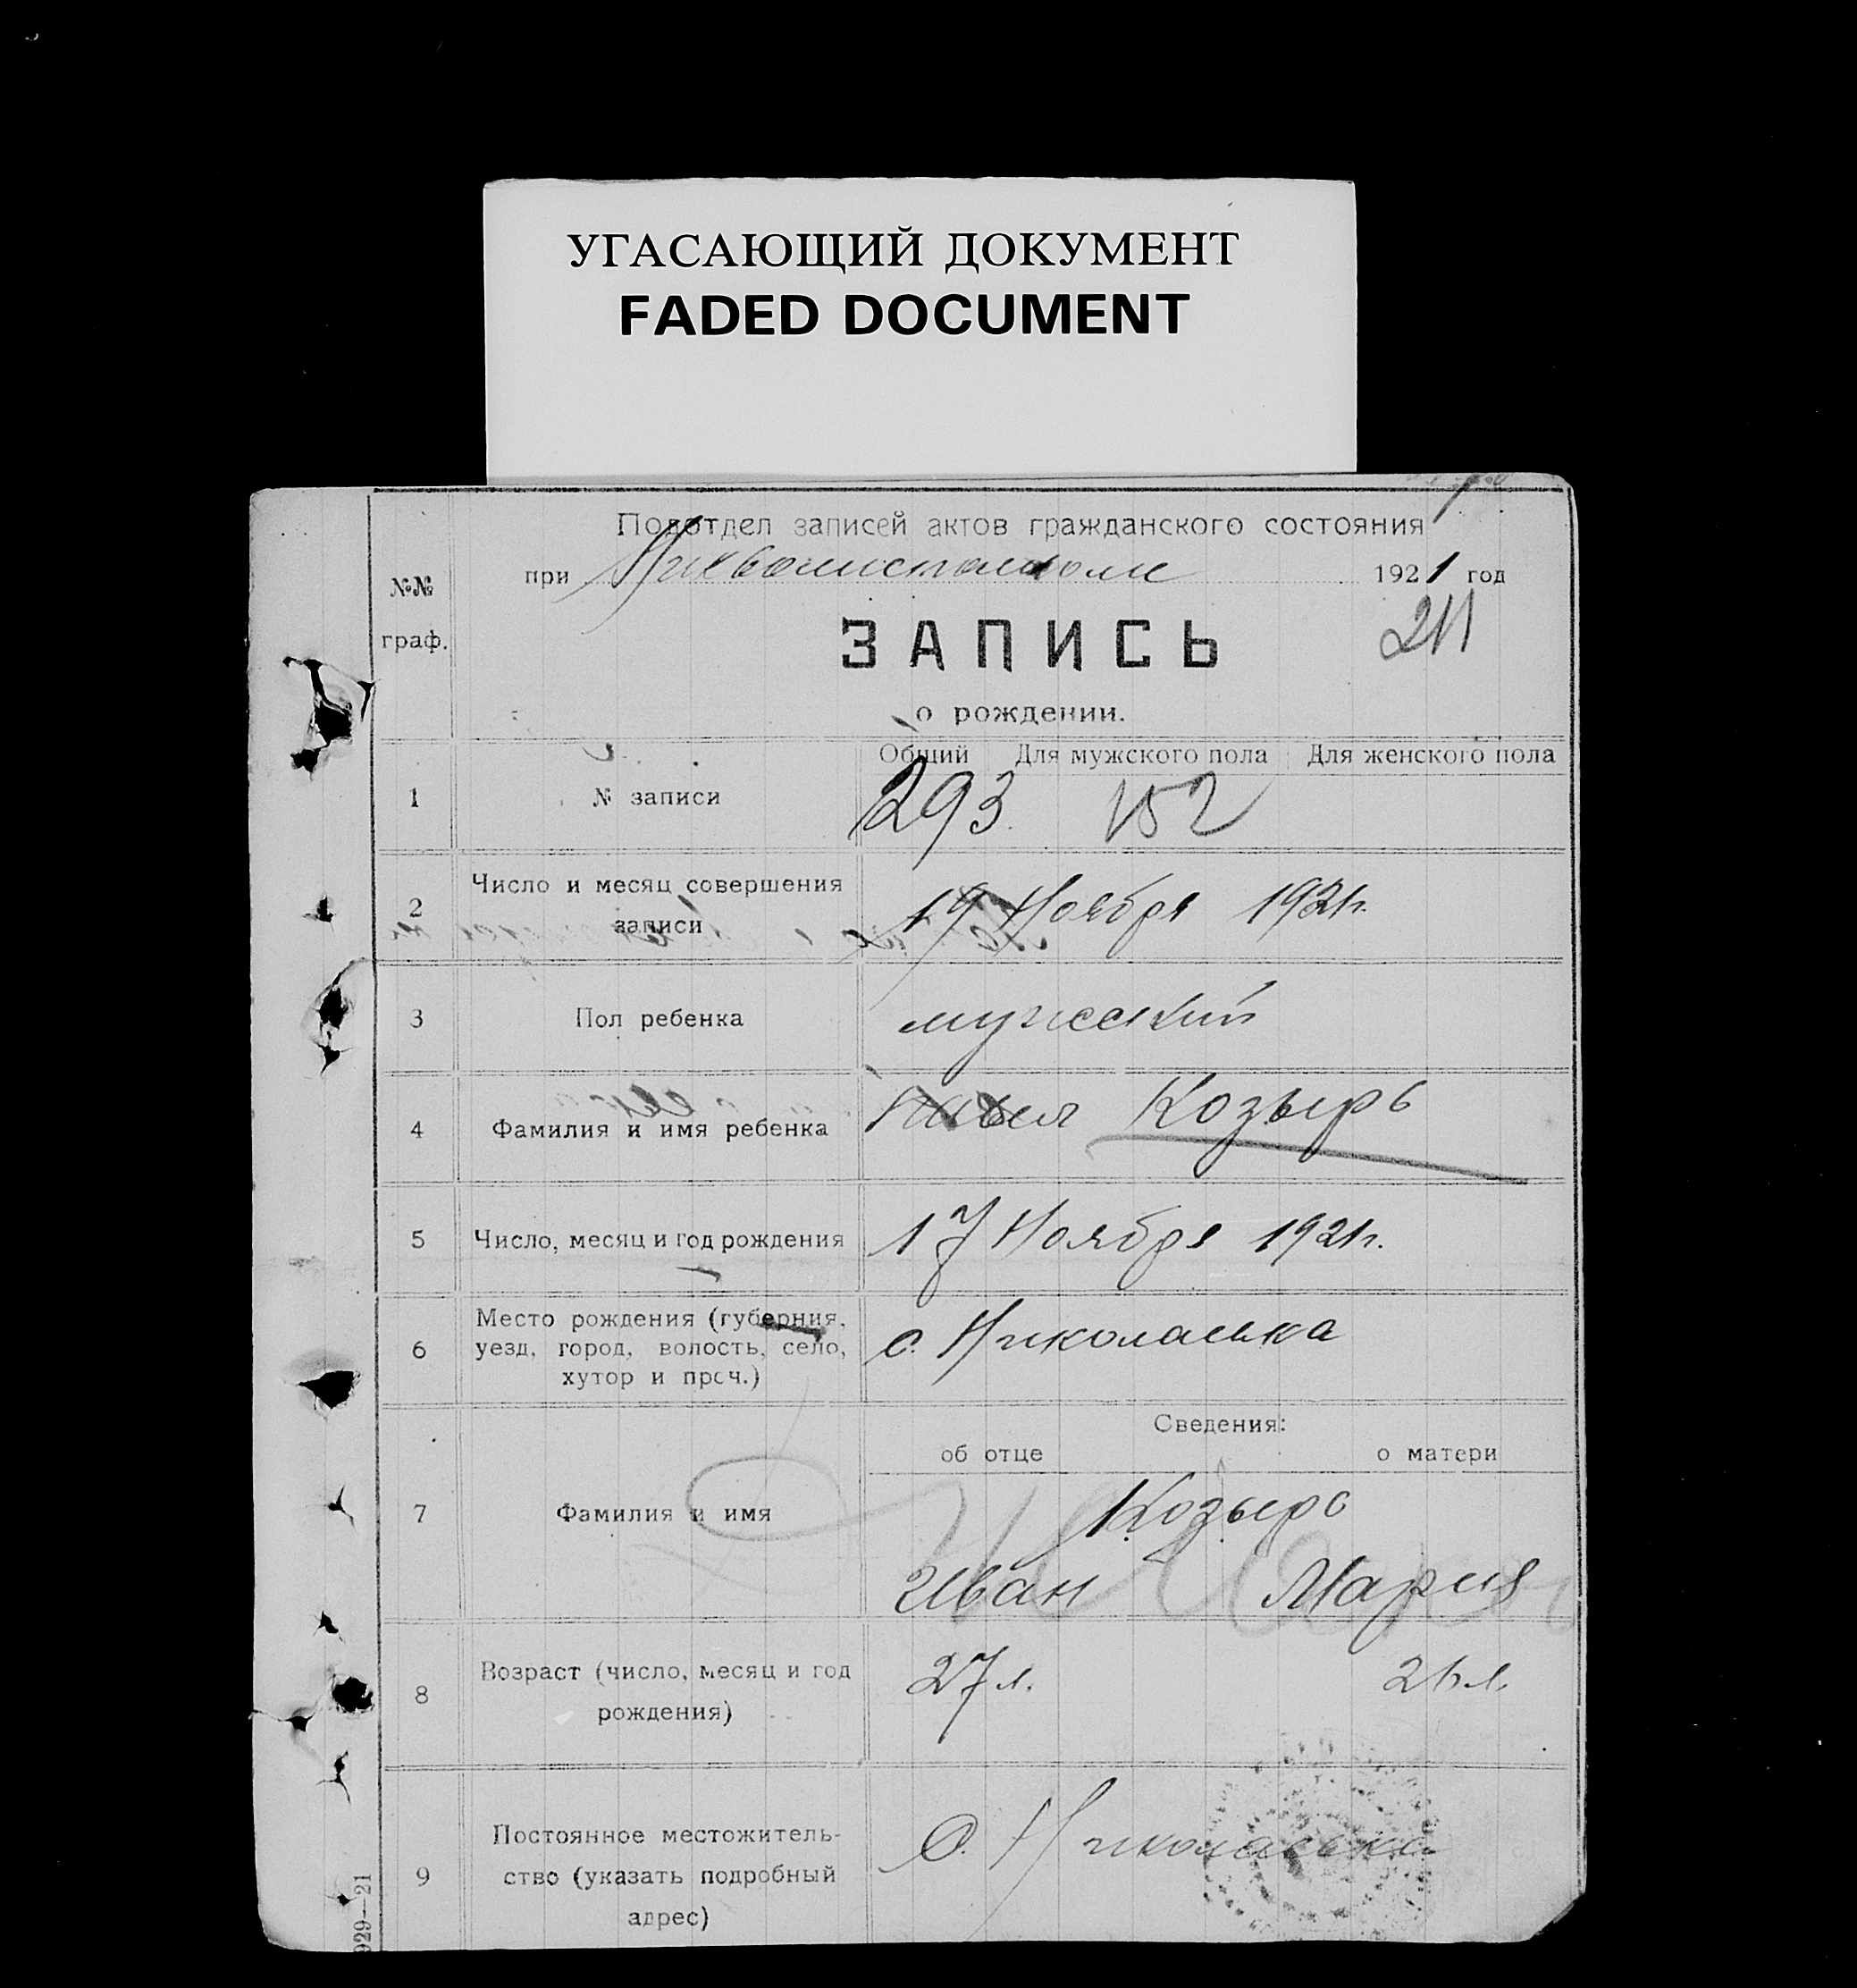 УГАСАЮЩИЙ ДОКУМЕНТ
FADED DOCUMENT
Подотдел записей актов гражданского состояния
при 1921 год
№№
граф.
ЗАПИСЬ
211
о рождении.
Общий Для мужского пола Для женского пола
1 № записи 293 152
2 Число и месяц совершения
записи
19 Ноября 1921 г.
3 Пол ребенка мужской
4 Фамилия и имя ребенка Павел Козырь
5 Число, месяц и год рождения 17 Ноября 1921 г.
6 Место рождения (губерния,
уезд, город, волость, село,
хутор и проч.)
с. Николаевка
Сведения:
об отце о матери
7 Фамилия и имя Козырь
Иван Мария
8 Возраст (число, месяц и год
рождения)
27 л. л.
9 Постоянное местожитель-
ство (указать подробный
адрес)
С. Николаевка
929—21